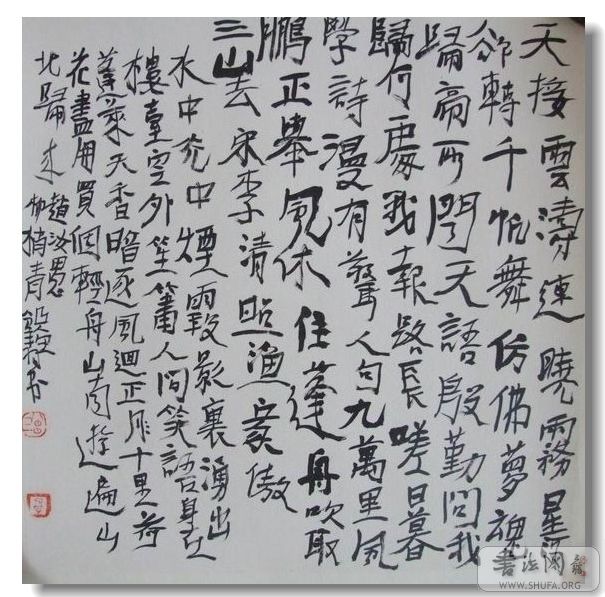 天接雲濤連曉霧星河
卻轉千帆舞仿佛夢魂
歸帝所聞天語殷勤問我
歸何處我報路長嗟日暮
學詩漫有驚人句九萬里風
鵬正舉風休住蓬舟吹取
三山去宋李清照漁家傲
水中光中煙霞影裏湧出
樓臺空外笙簫人間笑語身在
蓬萊天香暗逐風迴正月十里荷
花盡開買個輕舟山南遊遍山
北歸來趙汝愚
柳梢青
書法網
WWW.SHUFA.ORG